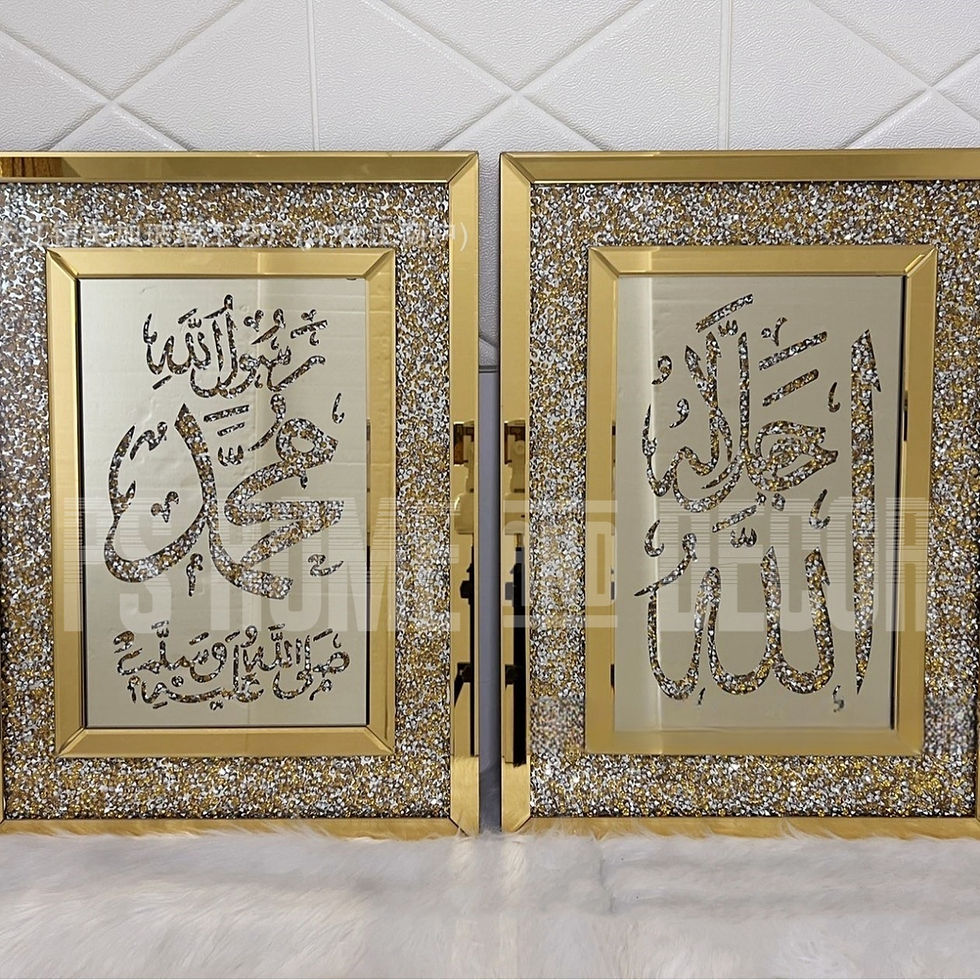 رَسُولُ اللَّهِ
مُحَمَّد
صَلَّى اللَّهُ عَلَيْهِ وَسَلَّمَ
جَلَّ جَلَالُهُ
اللَّه
HOME DECOR